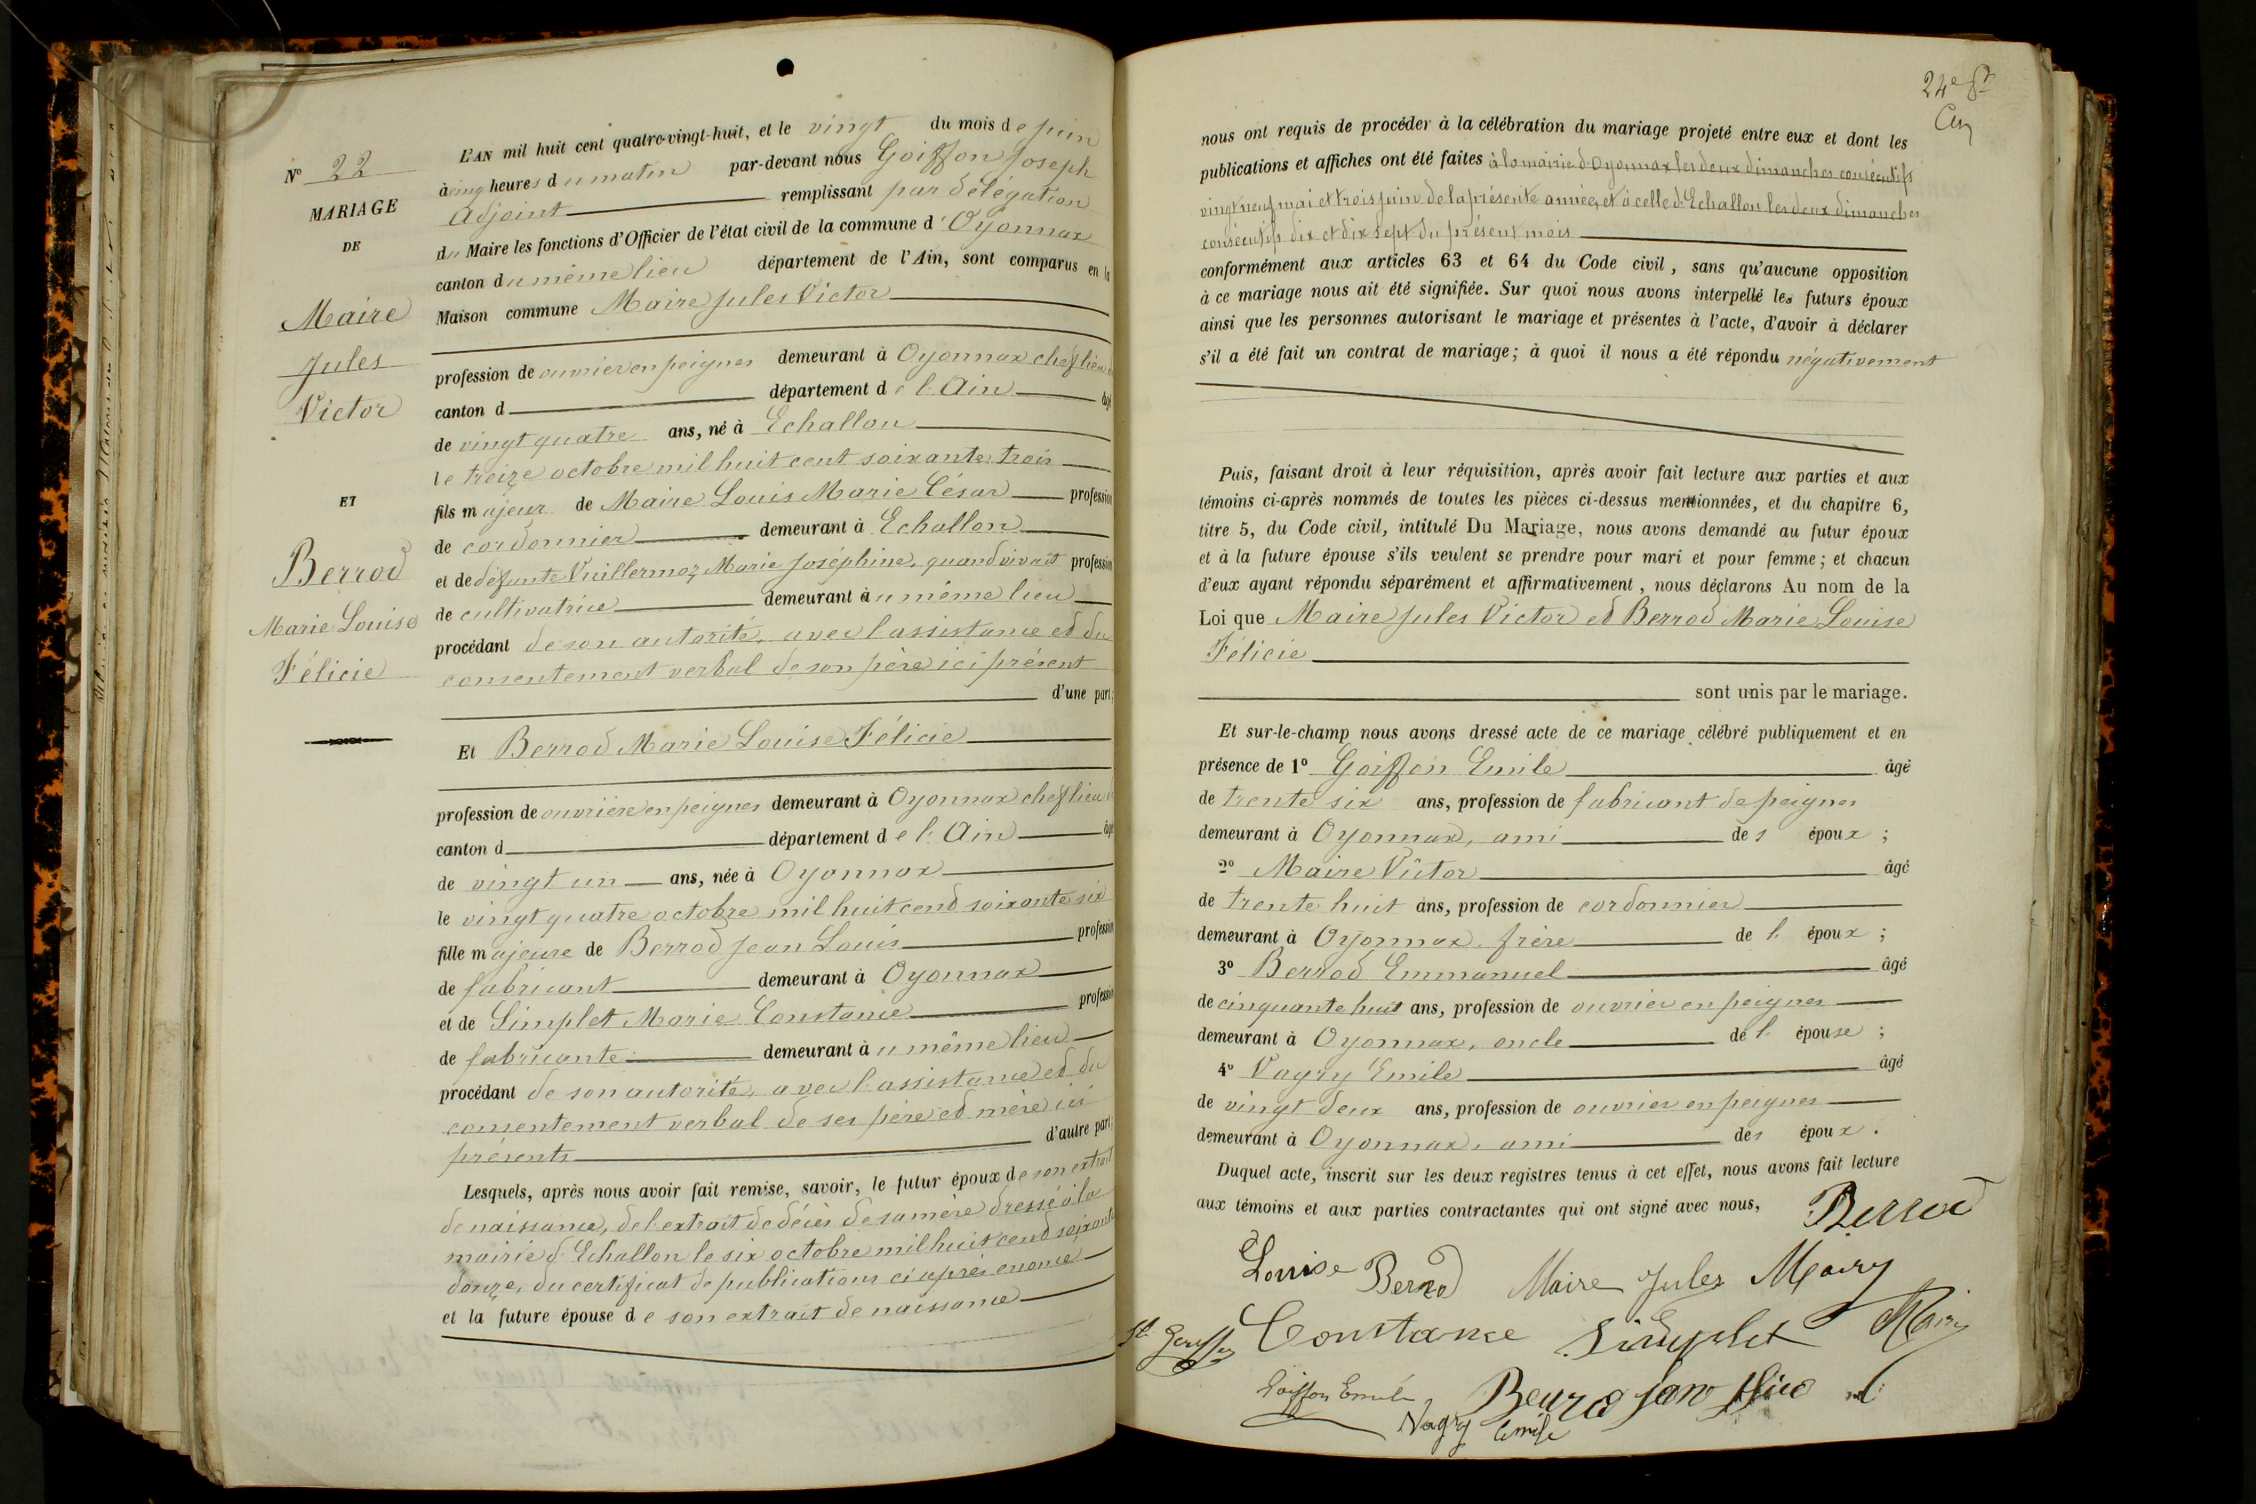 N° 22
MARIAGE
DE
Maire
Jules
Victor
ET
Berrod
Marie Louise
Félicie
L'AN mil huit cent quatre-vingt-huit, et le vingt du mois de juin
à cinq heures du matin par-devant nous Goiffon Joseph
Adjoint remplissant par délégation
du Maire les fonctions d'Officier de l'état civil de la commune d'Oyonnax
canton du même lieu département de l'Ain, sont comparus en la
Maison commune Maire Jules Victor
profession de ouvrier en peignes demeurant à Oyonnax chef lieu de
canton d département de l'Ain âgé
de vingt quatre ans, né à Echallon
le treize octobre mil huit cent soixante trois
fils majeur de Maire Louis Marie César profession
de cordonnier demeurant à Echallon
et de défunte Vuillermoz Marie Joséphine, quand vivait profession
de cultivatrice demeurant au même lieu
procédant de son autorité, avec l'assistance et du
consentement verbal de son père ici présent
d'une part;
Et Berrod Marie Louise Félicie
profession de ouvrière en peignes demeurant à Oyonnax chef lieu de
canton d département de l'Ain âgée
de vingt un ans, née à Oyonnax
le vingt quatre octobre mil huit cent soixante six
fille majeure de Berrod Jean Louis profession
de fabricant demeurant à Oyonnax
et de Simplet Marie Constance profession
de fabricante demeurant au même lieu
procédant de son autorité, avec l'assistance et du
consentement verbal de ses père et mère ici
présents d'autre part;
Lesquels, après nous avoir fait remise, savoir, le futur époux de son extrait
de naissance, de l'extrait de décès de sa mère dressé à la
mairie d'Echallon le six octobre mil huit cent soixante
douze, du certificat de publications ci après énoncé
et la future épouse de son extrait de naissance
24e
nous ont requis de procéder à la célébration du mariage projeté entre eux et dont les
publications et affiches ont été faites à la mairie d'Oyonnax les deux dimanches consécutifs
vingt neuf mai et trois juin de la présente année, et à celle d'Echallon les deux dimanches
consécutifs dix et dix sept du présent mois
conformément aux articles 63 et 64 du Code civil, sans qu'aucune opposition
à ce mariage nous ait été signifiée. Sur quoi nous avons interpellé les futurs époux
ainsi que les personnes autorisant le mariage et présentes à l'acte, d'avoir à déclarer
s'il a été fait un contrat de mariage; à quoi il nous a été répondu négativement
Puis, faisant droit à leur réquisition, après avoir fait lecture aux parties et aux
témoins ci-après nommés de toutes les pièces ci-dessus mentionnées, et du chapitre 6,
titre 5, du Code civil, intitulé Du Mariage, nous avons demandé au futur époux
et à la future épouse s'ils veulent se prendre pour mari et pour femme; et chacun
d'eux ayant répondu séparément et affirmativement, nous déclarons Au nom de la
Loi que Maire Jules Victor et Berrod Marie Louise
Félicie
sont unis par le mariage.
Et sur-le-champ nous avons dressé acte de ce mariage célébré publiquement et en
présence de 1° Goiffon Emile âgé
de trente six ans, profession de fabricant de peignes
demeurant à Oyonnax, ami des époux;
2° Maire Victor âgé
de trente huit ans, profession de cordonnier
demeurant à Oyonnax, frère de l'époux;
3° Berrod Emmanuel âgé
de cinquante huit ans, profession de ouvrier en peignes
demeurant à Oyonnax, oncle de l'épouse;
4° Vagry Emile âgé
de vingt deux ans, profession de ouvrier en peignes
demeurant à Oyonnax, ami des époux.
Duquel acte, inscrit sur les deux registres tenus à cet effet, nous avons fait lecture
aux témoins et aux parties contractantes qui ont signé avec nous, Berrod
Louise Berrod Maire Jules Mairy
Constance Simplet
Goiffon Emile
Vagry Emile